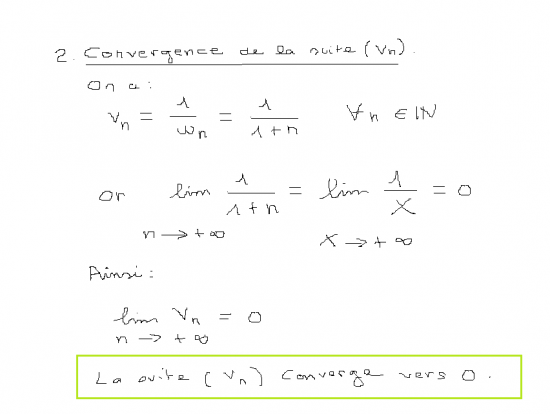 2. Convergence de la suite (Vn).
On a :
Vn = 1/wn = 1/(1+n) ∀n ∈ IN
Or lim 1/(1+n) = lim 1/X = 0
n → +∞ X → +∞
Ainsi :
lim Vn = 0
n → +∞
La suite (Vn) converge vers 0.